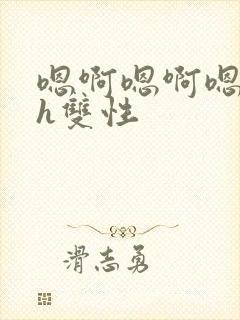 嗯啊嗯啊嗯
h雙性
滑志勇